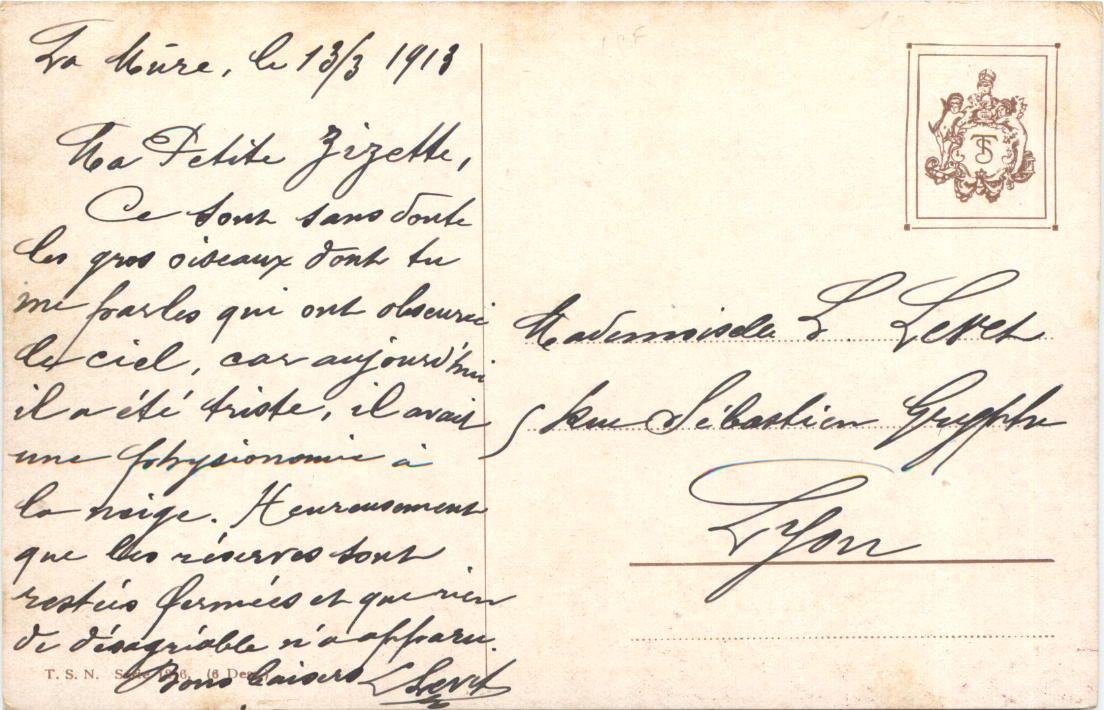 La Mûre, le 13/3 1913
Ma Petite Zizette,
Ce sont sans doute
les gros oiseaux dont tu
me parles qui ont obscurci
le ciel, car aujourd'hui
il a été triste, il avait
une physionomie à
la neige. Heureusement
que les réserves sont
restées fermées et que rien
de désagréable n'a apparu.
Bons baisers L Levet
T. S. N. Serie (6 Des
TS
Mademoiselle L. Levet
5 Rue Sébastien Gryphe
Lyon